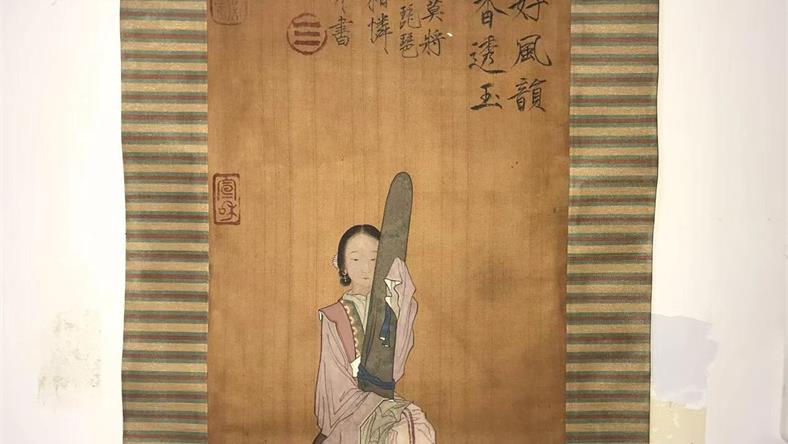 好風韻
香透玉
莫將
琵琶
相憐
書
宣和